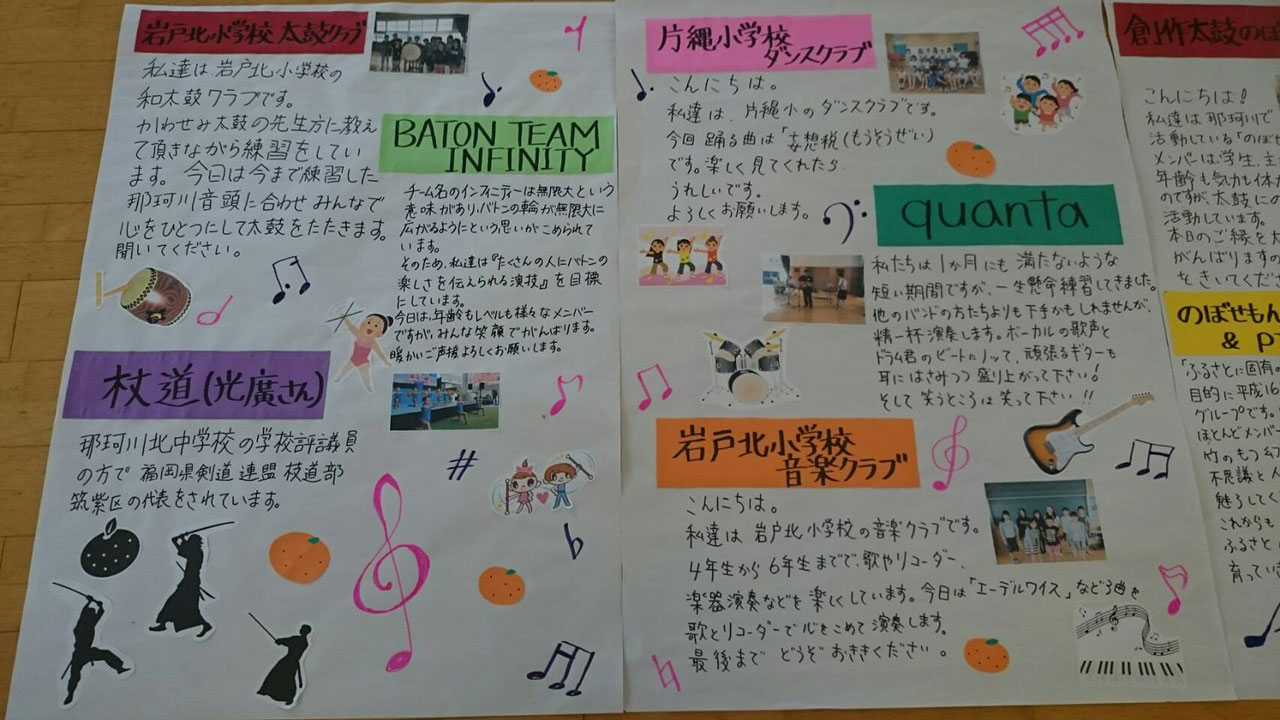 岩戸北小学校 太鼓クラブ
私達は 岩戸北小学校の
和太鼓クラブです。
かわせみ太鼓の先生方に教え
て頂きながら練習をしてい
ます。今日は今まで練習した
那珂川音頭に合わせ みんなで
心をひとつにして太鼓をたたきます。
聞いてください。
BATON TEAM
INFINITY
チーム名のインフィニティーは無限大という
意味があり、バトンの輪が無限大に
広がるようにという思いがこめられて
います。
そのため、私達は『たくさんの人にバトンの
楽しさを伝えられる演技』を目標
にしています。
今日は、年齢もレベルも様々なメンバー
ですが、みんな笑顔でがんばります。
暖かいご声援よろしくお願いします。
杖道(光廣さん)
那珂川北中学校の学校評議員
の方で 福岡県剣道連盟 杖道部
筑紫区の代表をされています。
片縄小学校
ダンスクラブ
こんにちは。
私達は、片縄小のダンスクラブです。
今回 踊る曲は「妄想税(もうそうぜい)
です。楽しく見てくれたら
うれしいです。
よろしくお願いします。
quanta
私たちは1か月にも満たないような
短い期間ですが、一生懸命練習してきました。
他のバンドの方たちよりも下手かもしれませんが、
精一杯演奏します。ボーカルの歌声と
ドラム君のビートにノッて、頑張るギターも
耳にはさみつつ盛り上がって下さい!
そして 笑うところは笑って下さい!!
岩戸北小学校
音楽クラブ
こんにちは。
私達は 岩戸北小学校の音楽クラブです。
4年生から6年生までで、歌やリコーダー、
楽器演奏などを楽しくしています。今日は「エーデルワイス」など3曲を
歌とリコーダーで心をこめて演奏します。
最後まで どうぞおききください。
創作太鼓のぼ
こんにちは!
私達は那珂川で
活動している「のぼせ
メンバーは、学生、主
年齢も気力も体力
のですが、太鼓にの
活動しています。
本日のご縁を大
がんばりますの
をきいてくだ
のぼせもん
& P
「ふるさとに固有の
目的に平成16
グループです。
ほとんどメンバー
竹のもつ
不思議と
魅了してく
これからも
ふるさと
育ってい